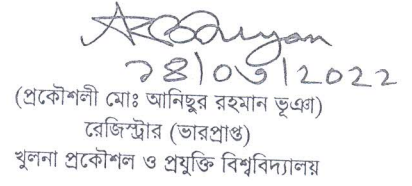 ২৪|০৩|২০২২
(প্রকৌশলী মোঃ আনিছুর রহমান ভূঞা)
রেজিস্ট্রার (ভারপ্রাপ্ত)
খুলনা প্রকৌশল ও প্রযুক্তি বিশ্ববিদ্যালয়